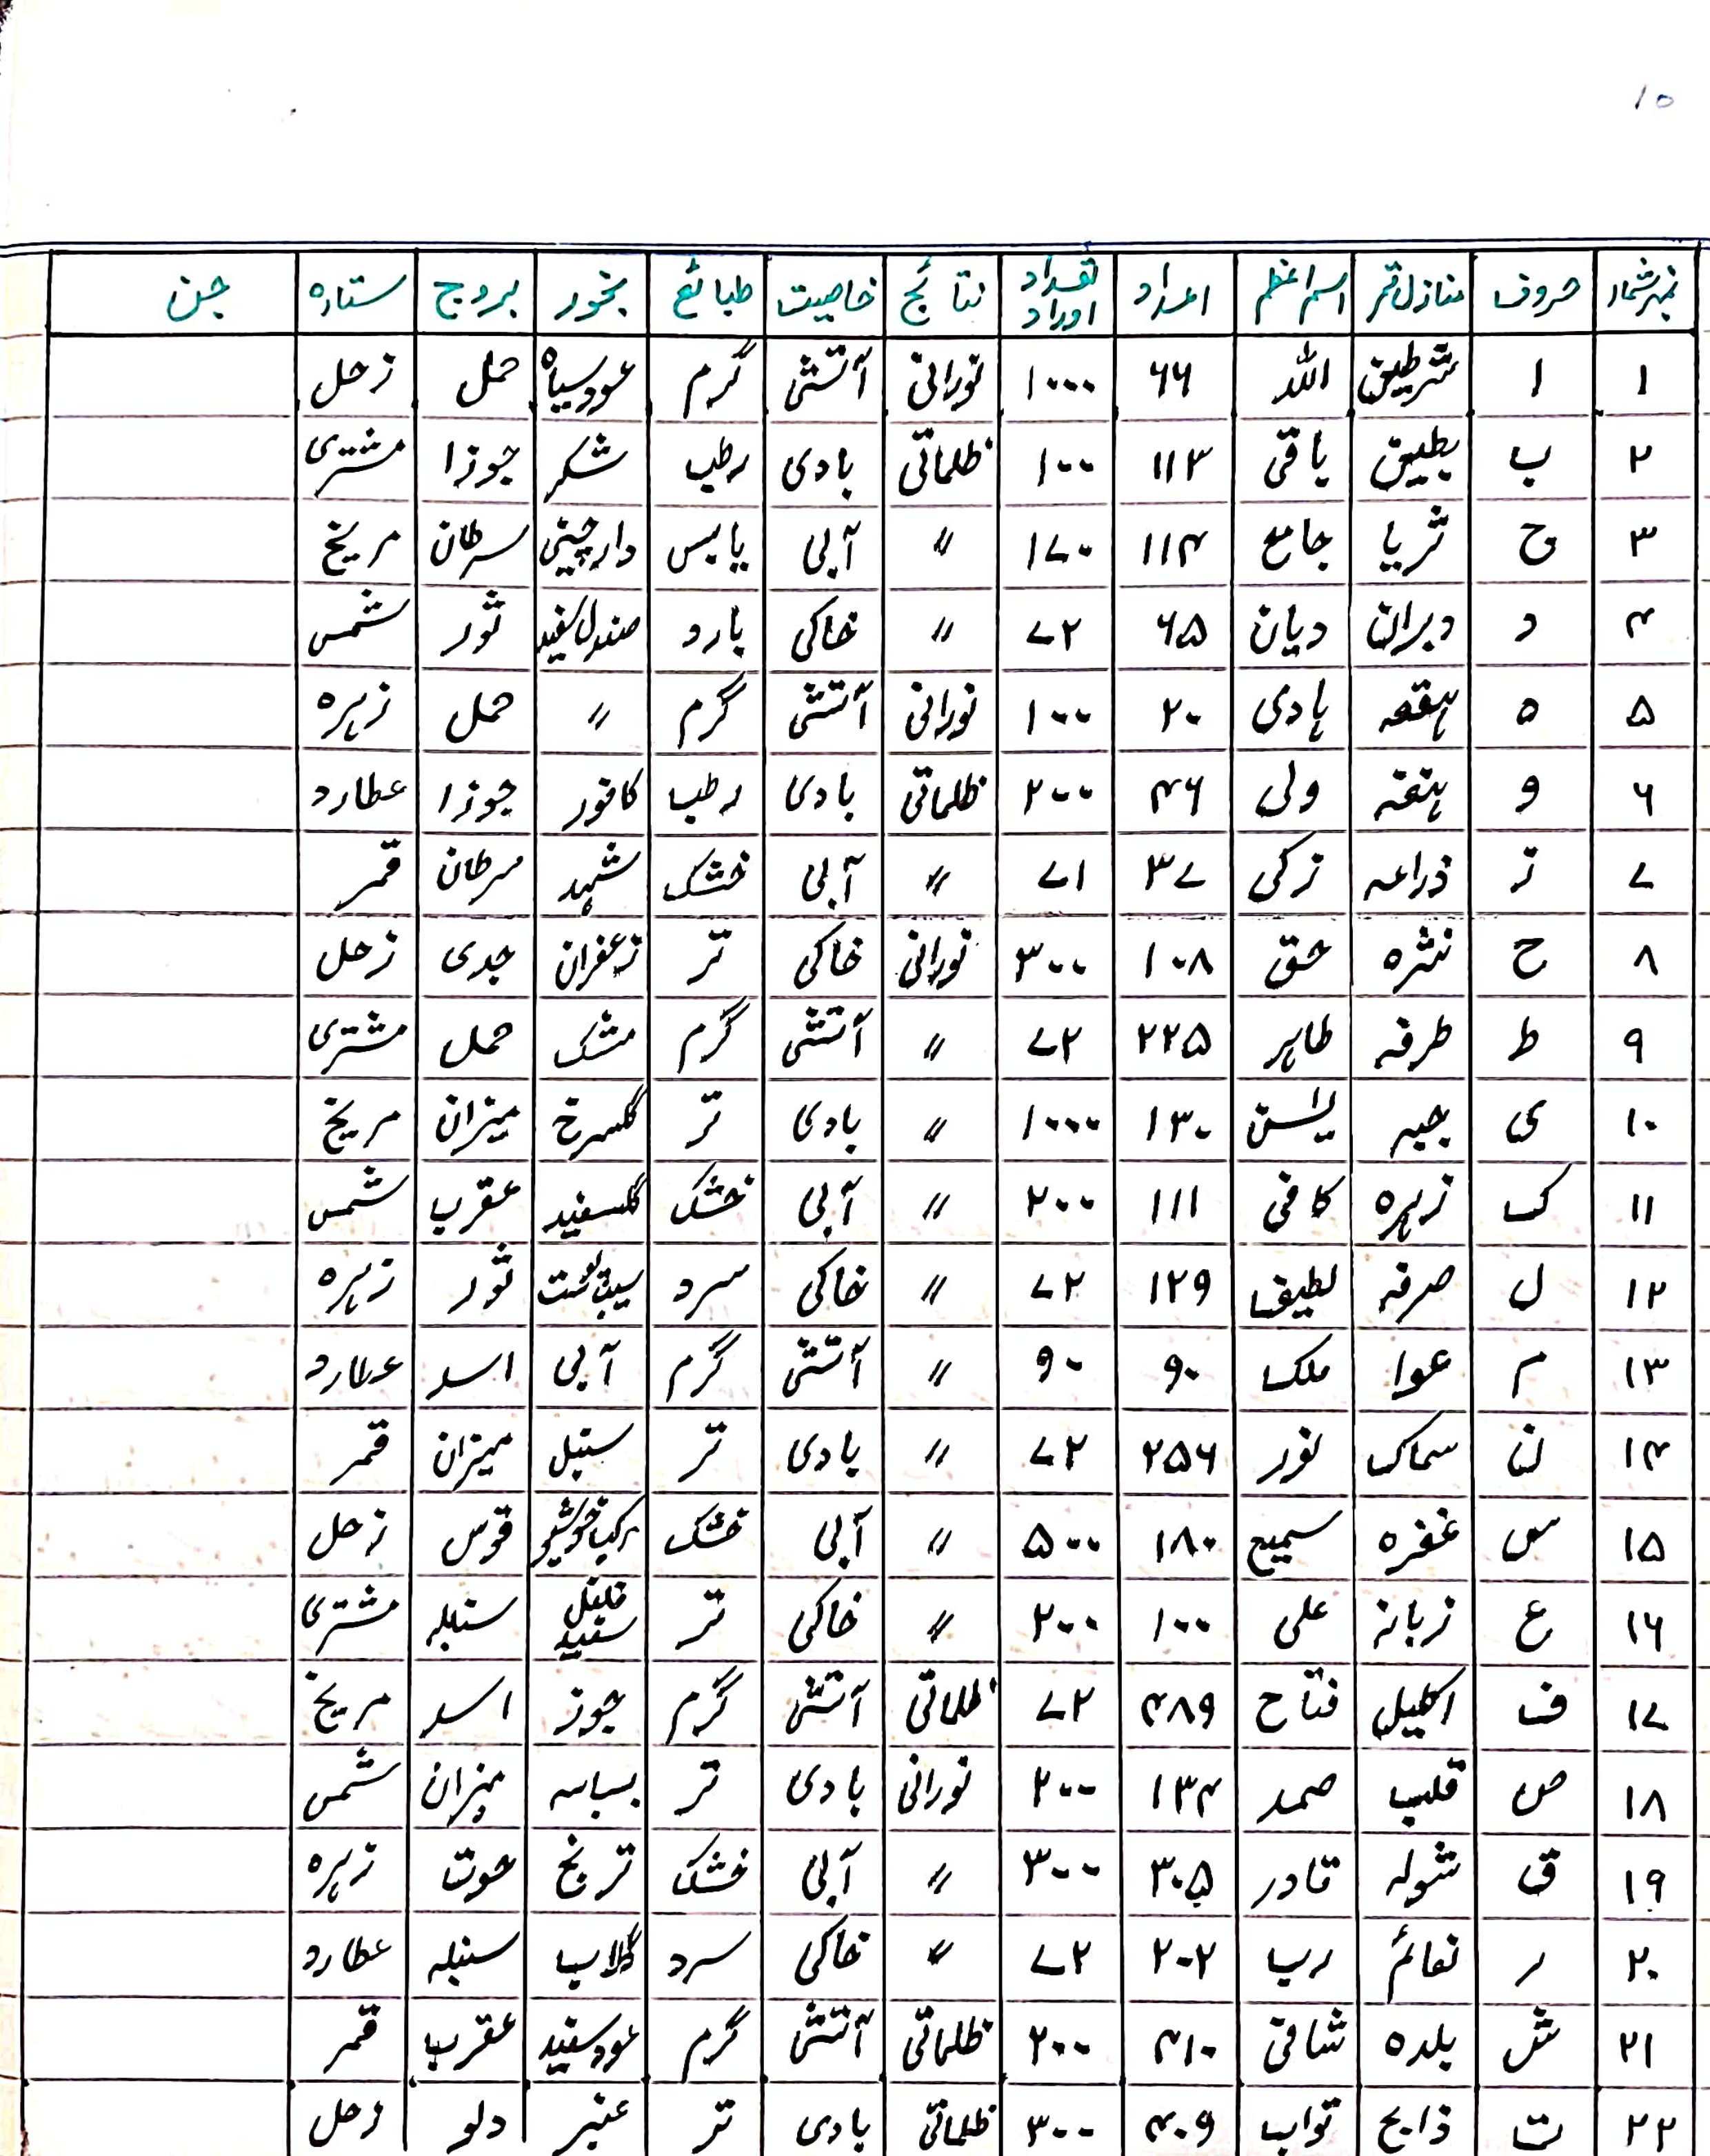 ۱۵
نمبر شمار حروف منازل قمر اسم اعظم اعداد تعداد اوراد نتائج خاصیت طبائع بخور بروج ستارہ جن
۱ ا شرطین اللہ ۶۶ ۱۰۰۰ نورانی آتشی گرم عود سیاہ حمل زحل
۲ ب بطین باقی ۱۱۳ ۱۰۰ ظلماتی بادی رطب شکر جوزا مشتری
۳ ج ثریا جامع ۱۱۴ ۱۷۰ " آبی یابس دارچینی سرطان مریخ
۴ د دبران دیان ۶۵ ۷۲ " خاکی بارد صندل سفید ثور شمس
۵ ہ ہقعہ ہادی ۲۰ ۱۰۰ نورانی آتشی گرم " حمل زہرہ
۶ و ہنقہ ولی ۴۶ ۲۰۰ ظلماتی بادی رطب کافور جوزا عطارد
۷ ز ذراعہ زکی ۳۷ ۷۱ " آبی خشک شہد سرطان قمر
۸ ح نثرہ حق ۱۰۸ ۳۰۰ نورانی خاکی تر زعفران جدی زحل
۹ ط طرفہ طاہر ۲۲۵ ۷۲ " آتشی گرم مشک حمل مشتری
۱۰ ی جبہ یٰسن ۱۳۰ ۱۰۰۰ " بادی تر گلسرخ میزان مریخ
۱۱ ک زہرہ کافی ۱۱۱ ۲۰۰ " آبی خشک گلسفید عقرب شمس
۱۲ ل صرفہ لطیف ۱۲۹ ۷۲ " خاکی سرد ثور زہرہ
۱۳ م عوا ملک ۹۰ ۹۰ " آتشی گرم آبی اسد عطارد
۱۴ ن سماک نور ۲۵۶ ۷۲ " بادی تر سنبل میزان قمر
۱۵ س غفرہ سمیع ۱۸۰ ۵۰۰ " آبی خشک قوس زحل
۱۶ ع زبانہ علی ۱۰۰ ۲۰۰ " خاکی تر فلفل سفید سنبلہ مشتری
۱۷ ف اکلیل فتاح ۴۸۹ ۷۲ ظلماتی آتشی گرم جوز اسد مریخ
۱۸ ص قلب صمد ۱۳۴ ۲۰۰ نورانی بادی تر بسباسہ میزان شمس
۱۹ ق شولہ قادر ۳۰۵ ۳۰۰ " آبی خشک ترنج حوت زہرہ
۲۰ ر نعائم رب ۲۰۲ ۷۲ " خاکی سرد گلاب سنبلہ عطارد
۲۱ ش بلدہ شافی ۴۱۰ ۲۰۰ ظلماتی آتشی گرم عود سفید عقرب قمر
۲۲ ت ذابح تواب ۴۰۹ ۳۰۰ ظلماتی بادی تر عنبر دلو زحل